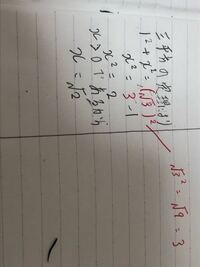 三平方の定理より
1² + x² = (√3)²
x² = 3 - 1
x² = 2
x > 0 であるから
x = √2
√3² = √9 = 3